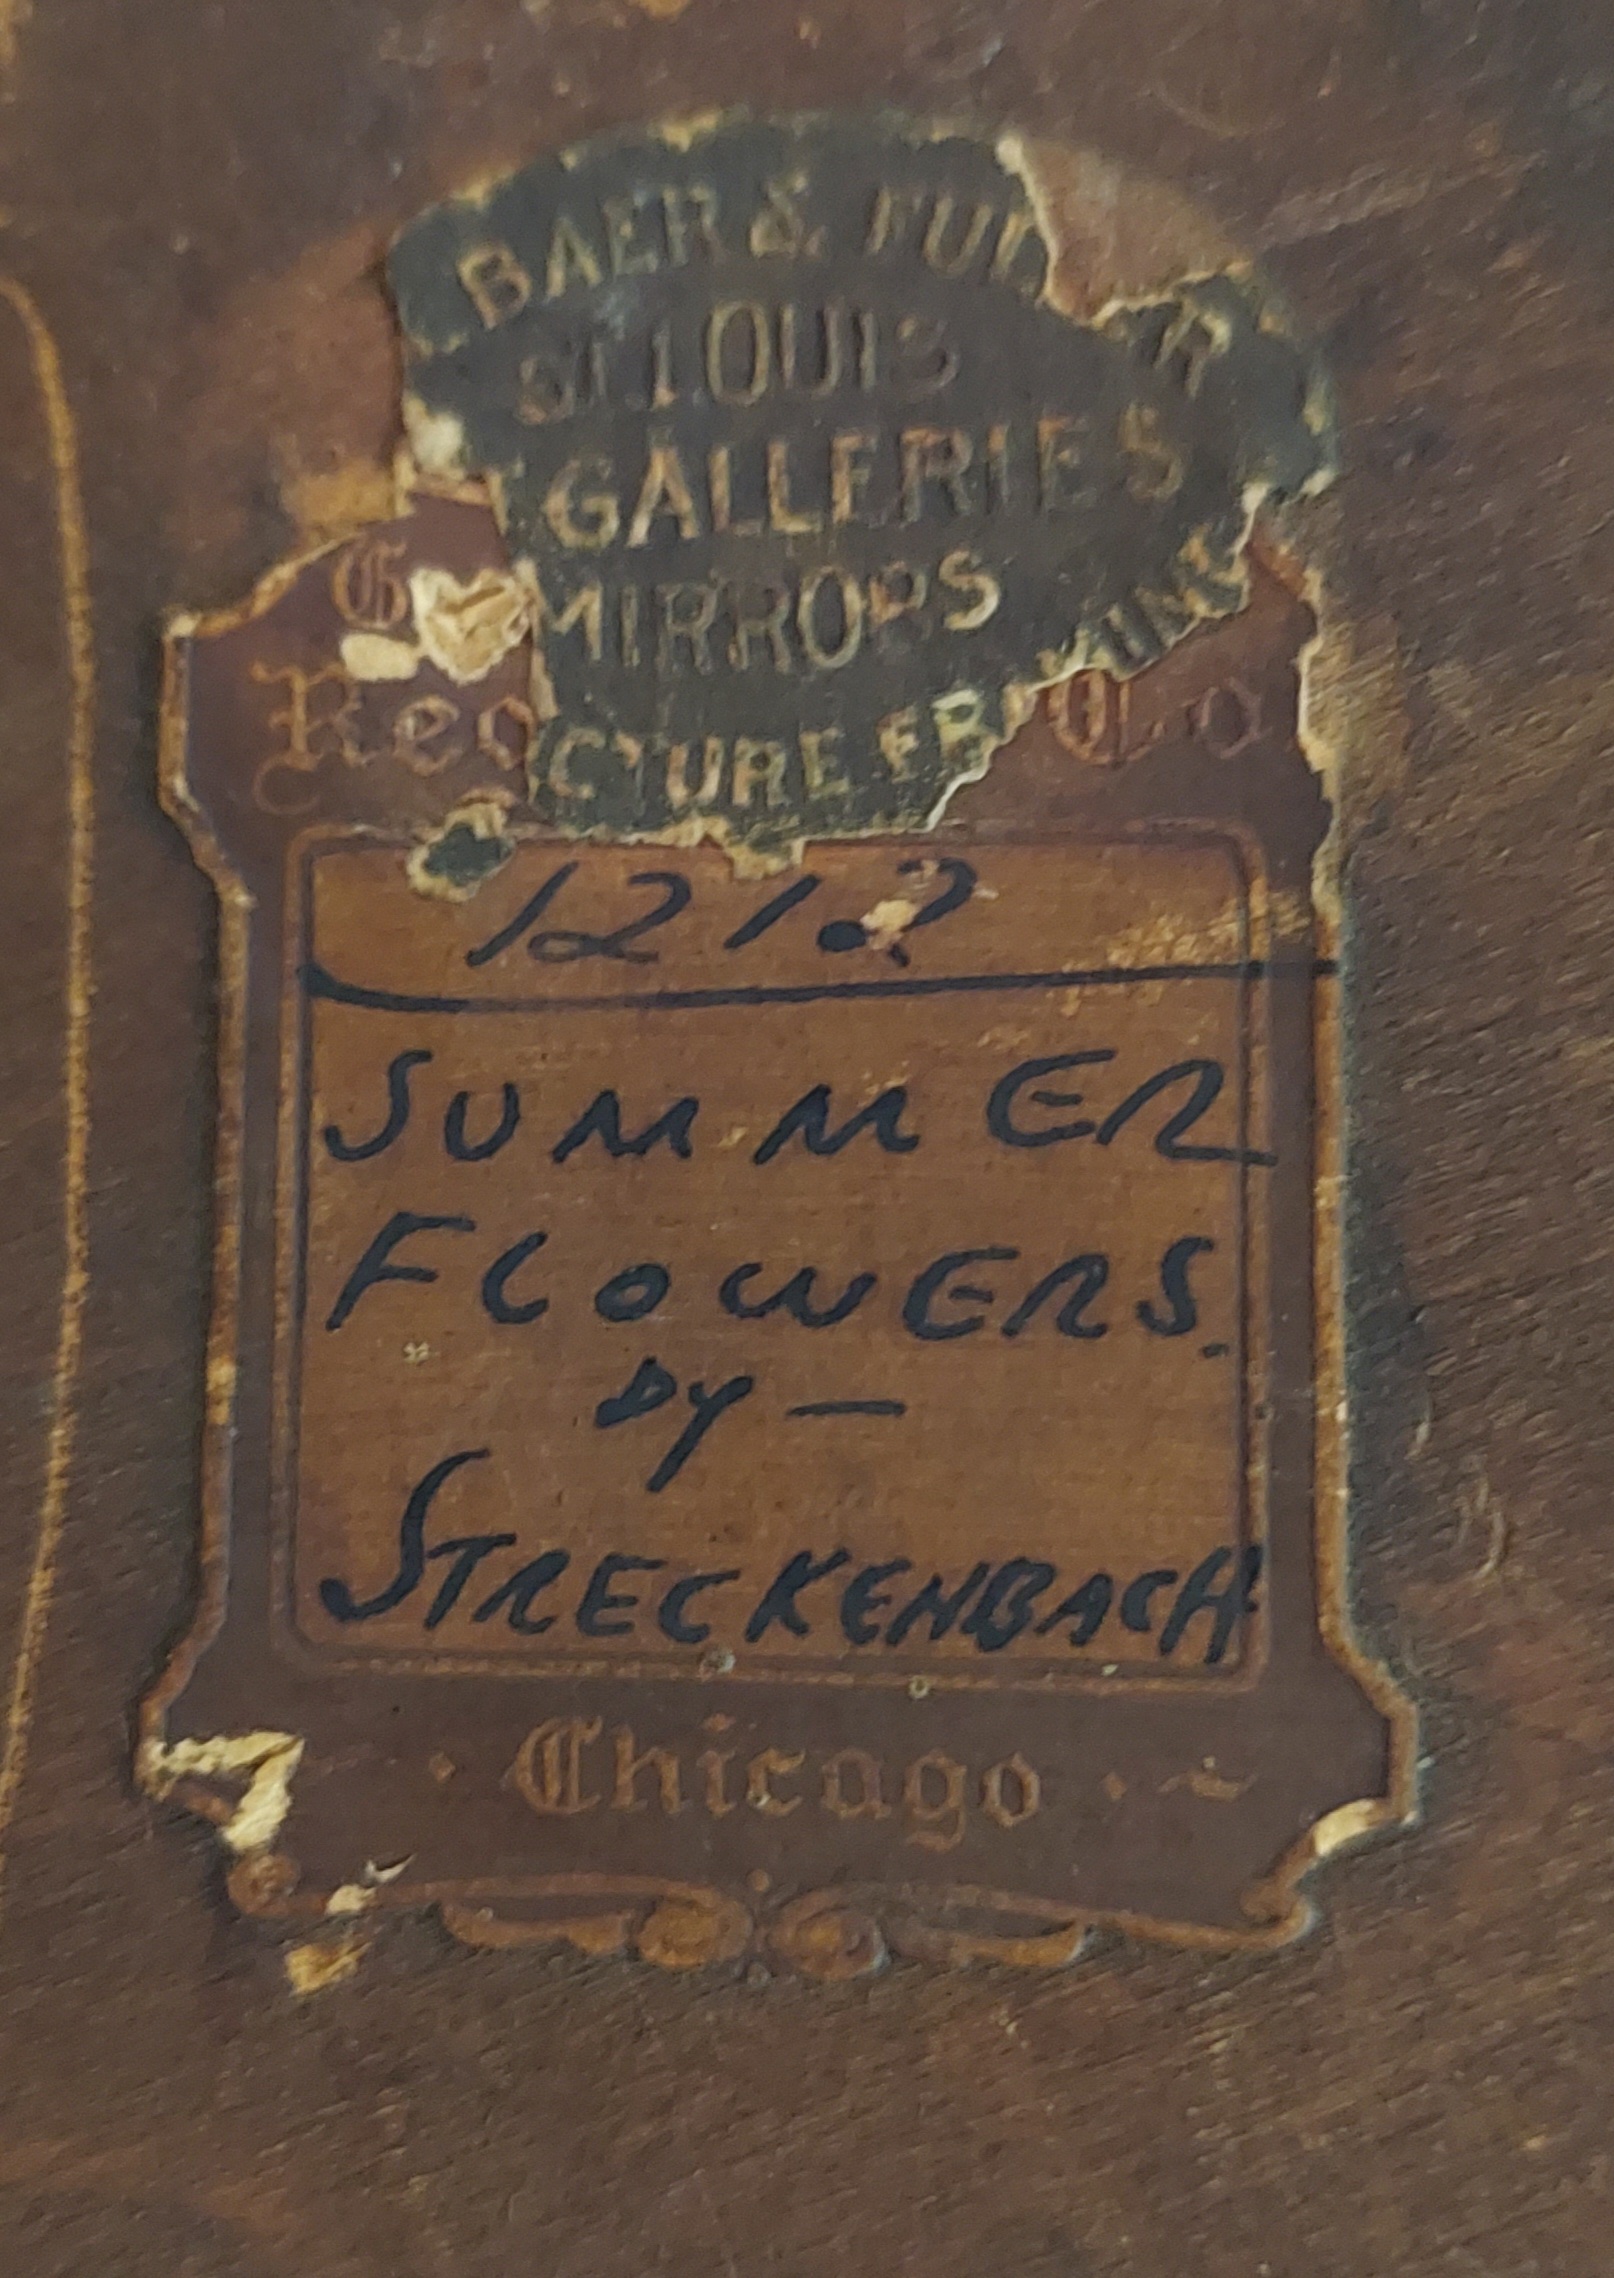 BAER & FUL R
ST. LOUIS
GALLERIES
MIRRORS
CTURE FRAMING
1212
SUMMER
FLOWERS.
BY —
STRECKENBACH
· Chicago ·